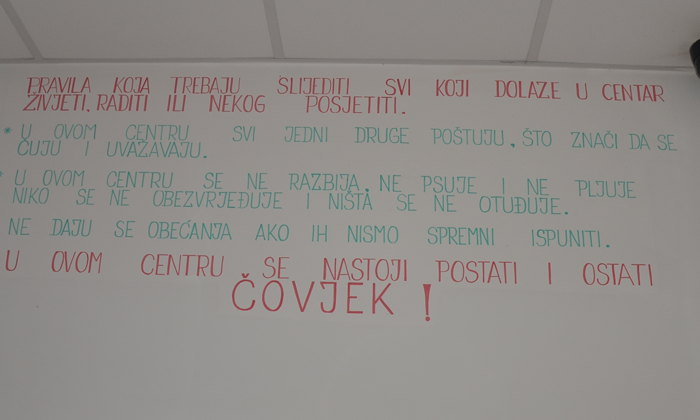 PRAVILA KOJA TREBAJU SLIJEDITI SVI KOJI DOLAZE U CENTAR
ŽIVJETI, RADITI ILI NEKOG POSJETITI.
* U OVOM CENTRU SVI JEDNI DRUGE POŠTUJU, ŠTO ZNAČI DA SE
ČUJU I UVAŽAVAJU.
* U OVOM CENTRU SE NE RAZBIJA, NE PSUJE I NE PLJUJE
NIKO SE NE OBEZVRJEĐUJE I NIŠTA SE NE OTUĐUJE.
NE DAJU SE OBEĆANJA AKO IH NISMO SPREMNI ISPUNITI.
U OVOM CENTRU SE NASTOJI POSTATI I OSTATI
ČOVJEK !